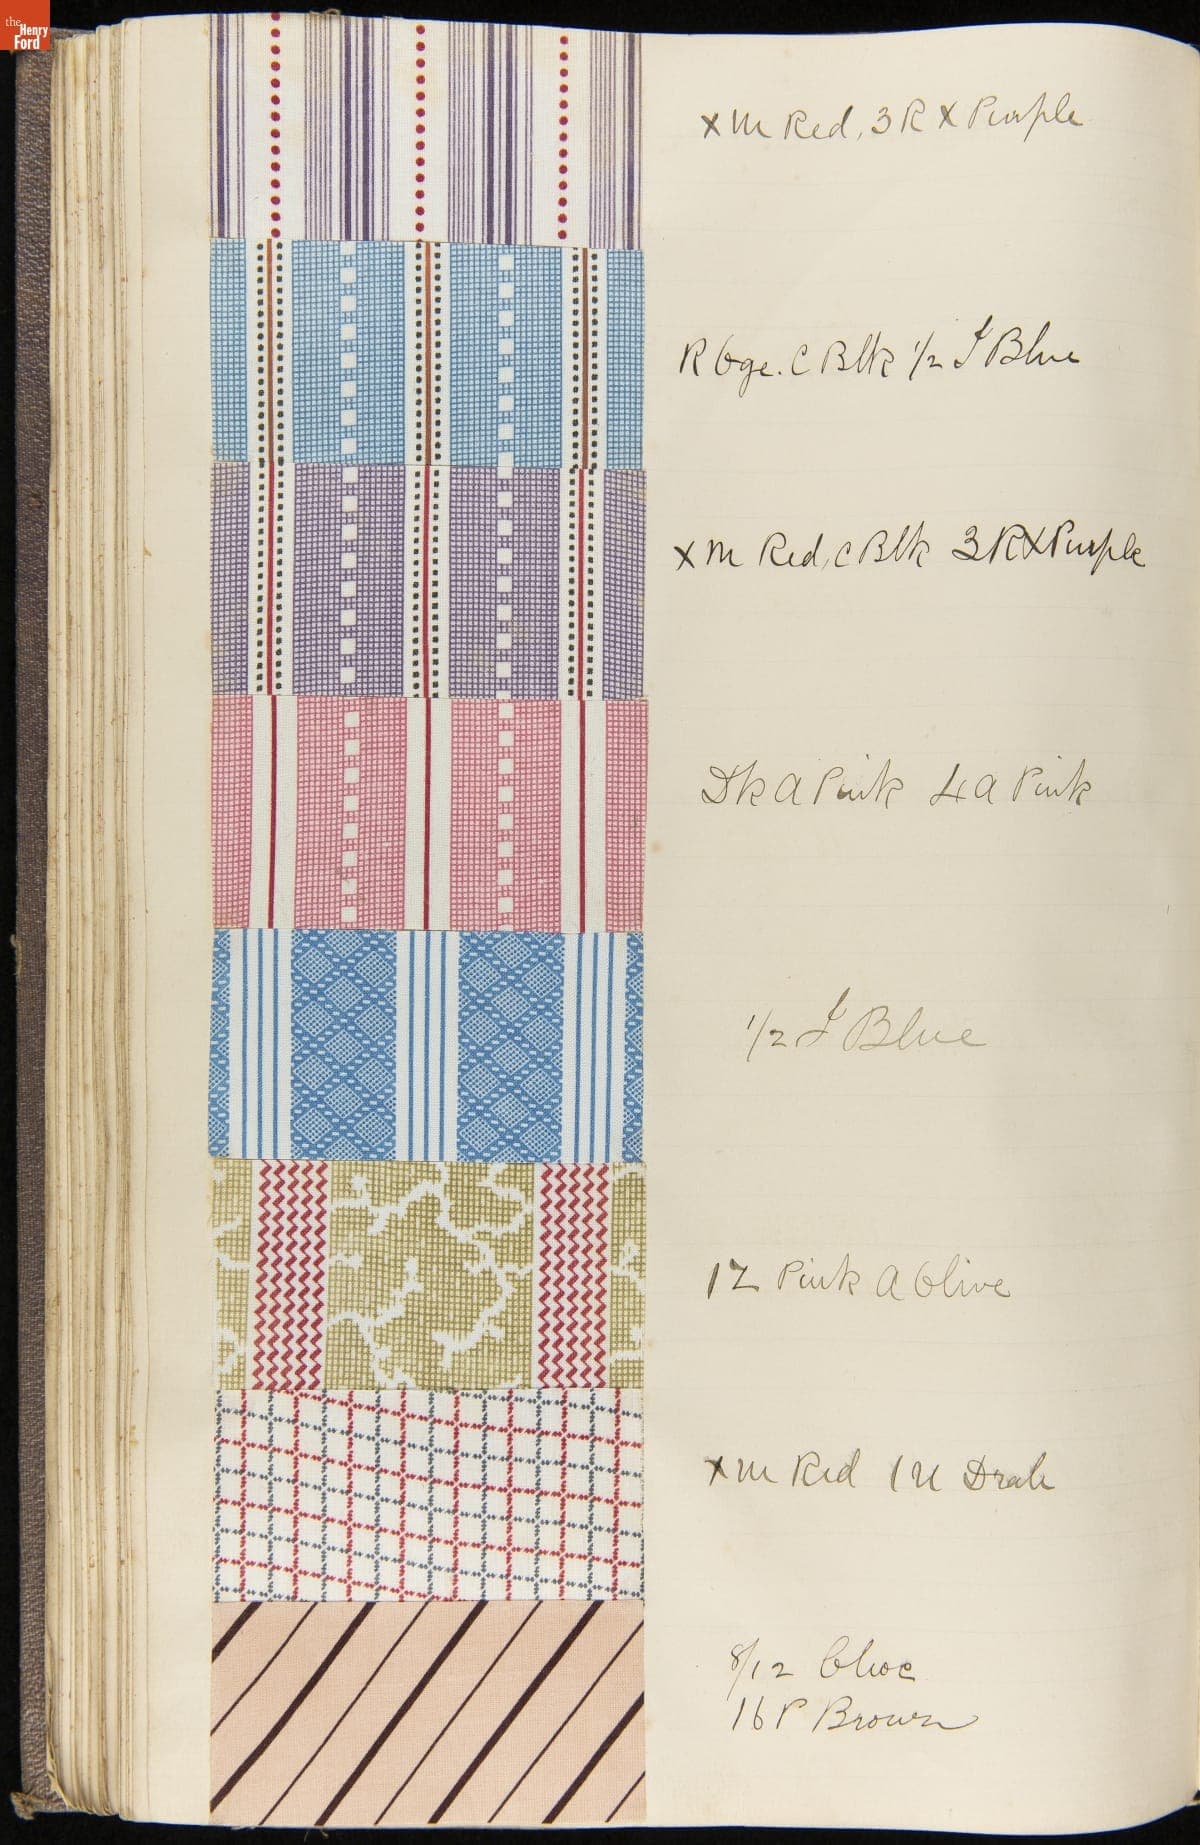 the Henry Ford
x M Red, 3 R x Purple
R Oge. C Blk 1/2 J Blue
x M Red, C Blk 3 R x Purple
Dk A Pink 4 A Pink
1/2 J Blue
12 Pink A Olive
x M Red 1 U Drab
8/12 Choc
16 P Brown